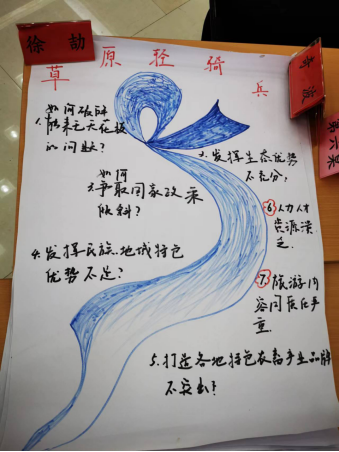 徐 劼
草原轻骑兵
如何破解
1.
的问题?
如何
争取国家政策
倾斜?
发挥生态优势
不充分,
⑥人力人才
资源溃
乏.
4.发挥民族、地域特色
优势不足?
⑦旅游内
容同质化严
重.
5.打造各地特色农畜产业品牌
不突出?
第六